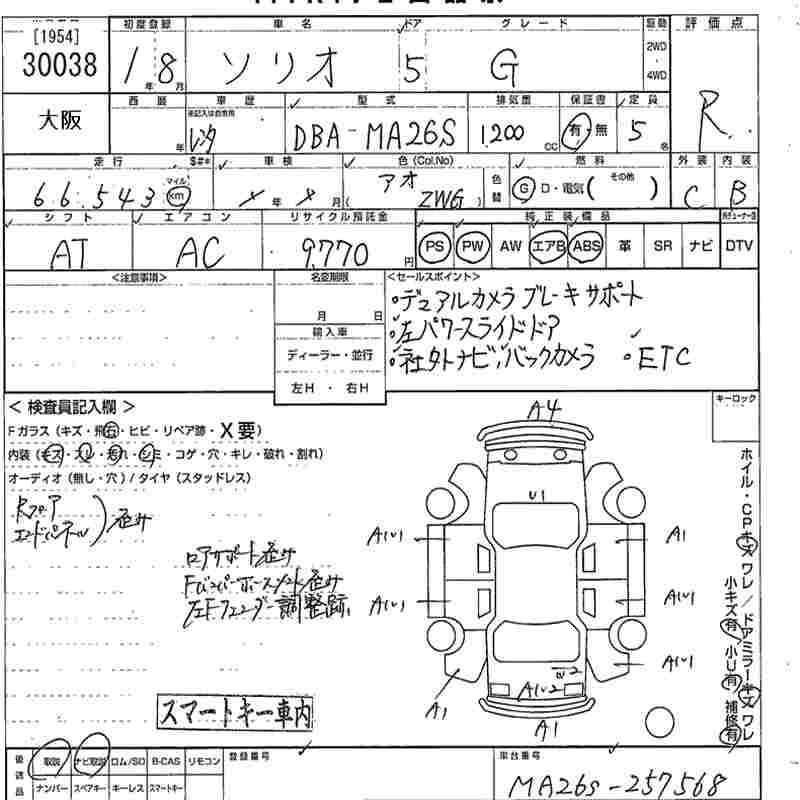 [1954]
30038
初度登録
車名
ドア
グレード
駆動
評価点
1年8月
ソリオ
5
G
2WD
・
4WD
R
大阪
西暦
車歴
型式
排気量
保証書
定員
年
未記入は自家用
レンタ
DBA-MA26S
1.200cc
有・無
5名
走行
$#*
車検
色(Col.No)
燃料
外装
内装
66,543
マイル
km
×年×月
アオ
(ZWG)
色替
G・D・電気(その他)
C
B
シフト
エアコン
リサイクル預託金
純正装備品
AT
AC
9770円
PS
PW
AW
エアB
ABS
革
SR
ナビ
DTV
<注意事項>
名変期限
<セールスポイント>
月 日
・デュアルカメラブレーキサポート
輸入車
・左パワースライドドア
ディーラー・並行
・社外ナビ、バックカメラ ・ETC
左H・右H
キーロック
<検査員記入欄>
Fガラス(キズ・飛石・ヒビ・リペア跡・X要)
内装(キズ・スレ・汚れ・シミ・コゲ・穴・キレ・破れ・割れ)
オーディオ(無し・穴)/タイヤ(スタッドレス)
Rフロア
エンドパネル
)歪み
ロアサポート歪み
左Fフェンダー調整跡
A4
U1
A(U)
A1
A(U)
A(U)
A(U)
W2
AU2
A1
A1
ホイル・CPキズ ワレ/ドアミラーキズ ワレ
小キズ有 小U有 補修有
スマートキー車内
後送品
取説
ナビ取説
ロム/SD
B-CAS
リモコン
登録番号
車台番号
ナンバー
スペアキー
キーレス
スマートキー
MA26S-257568